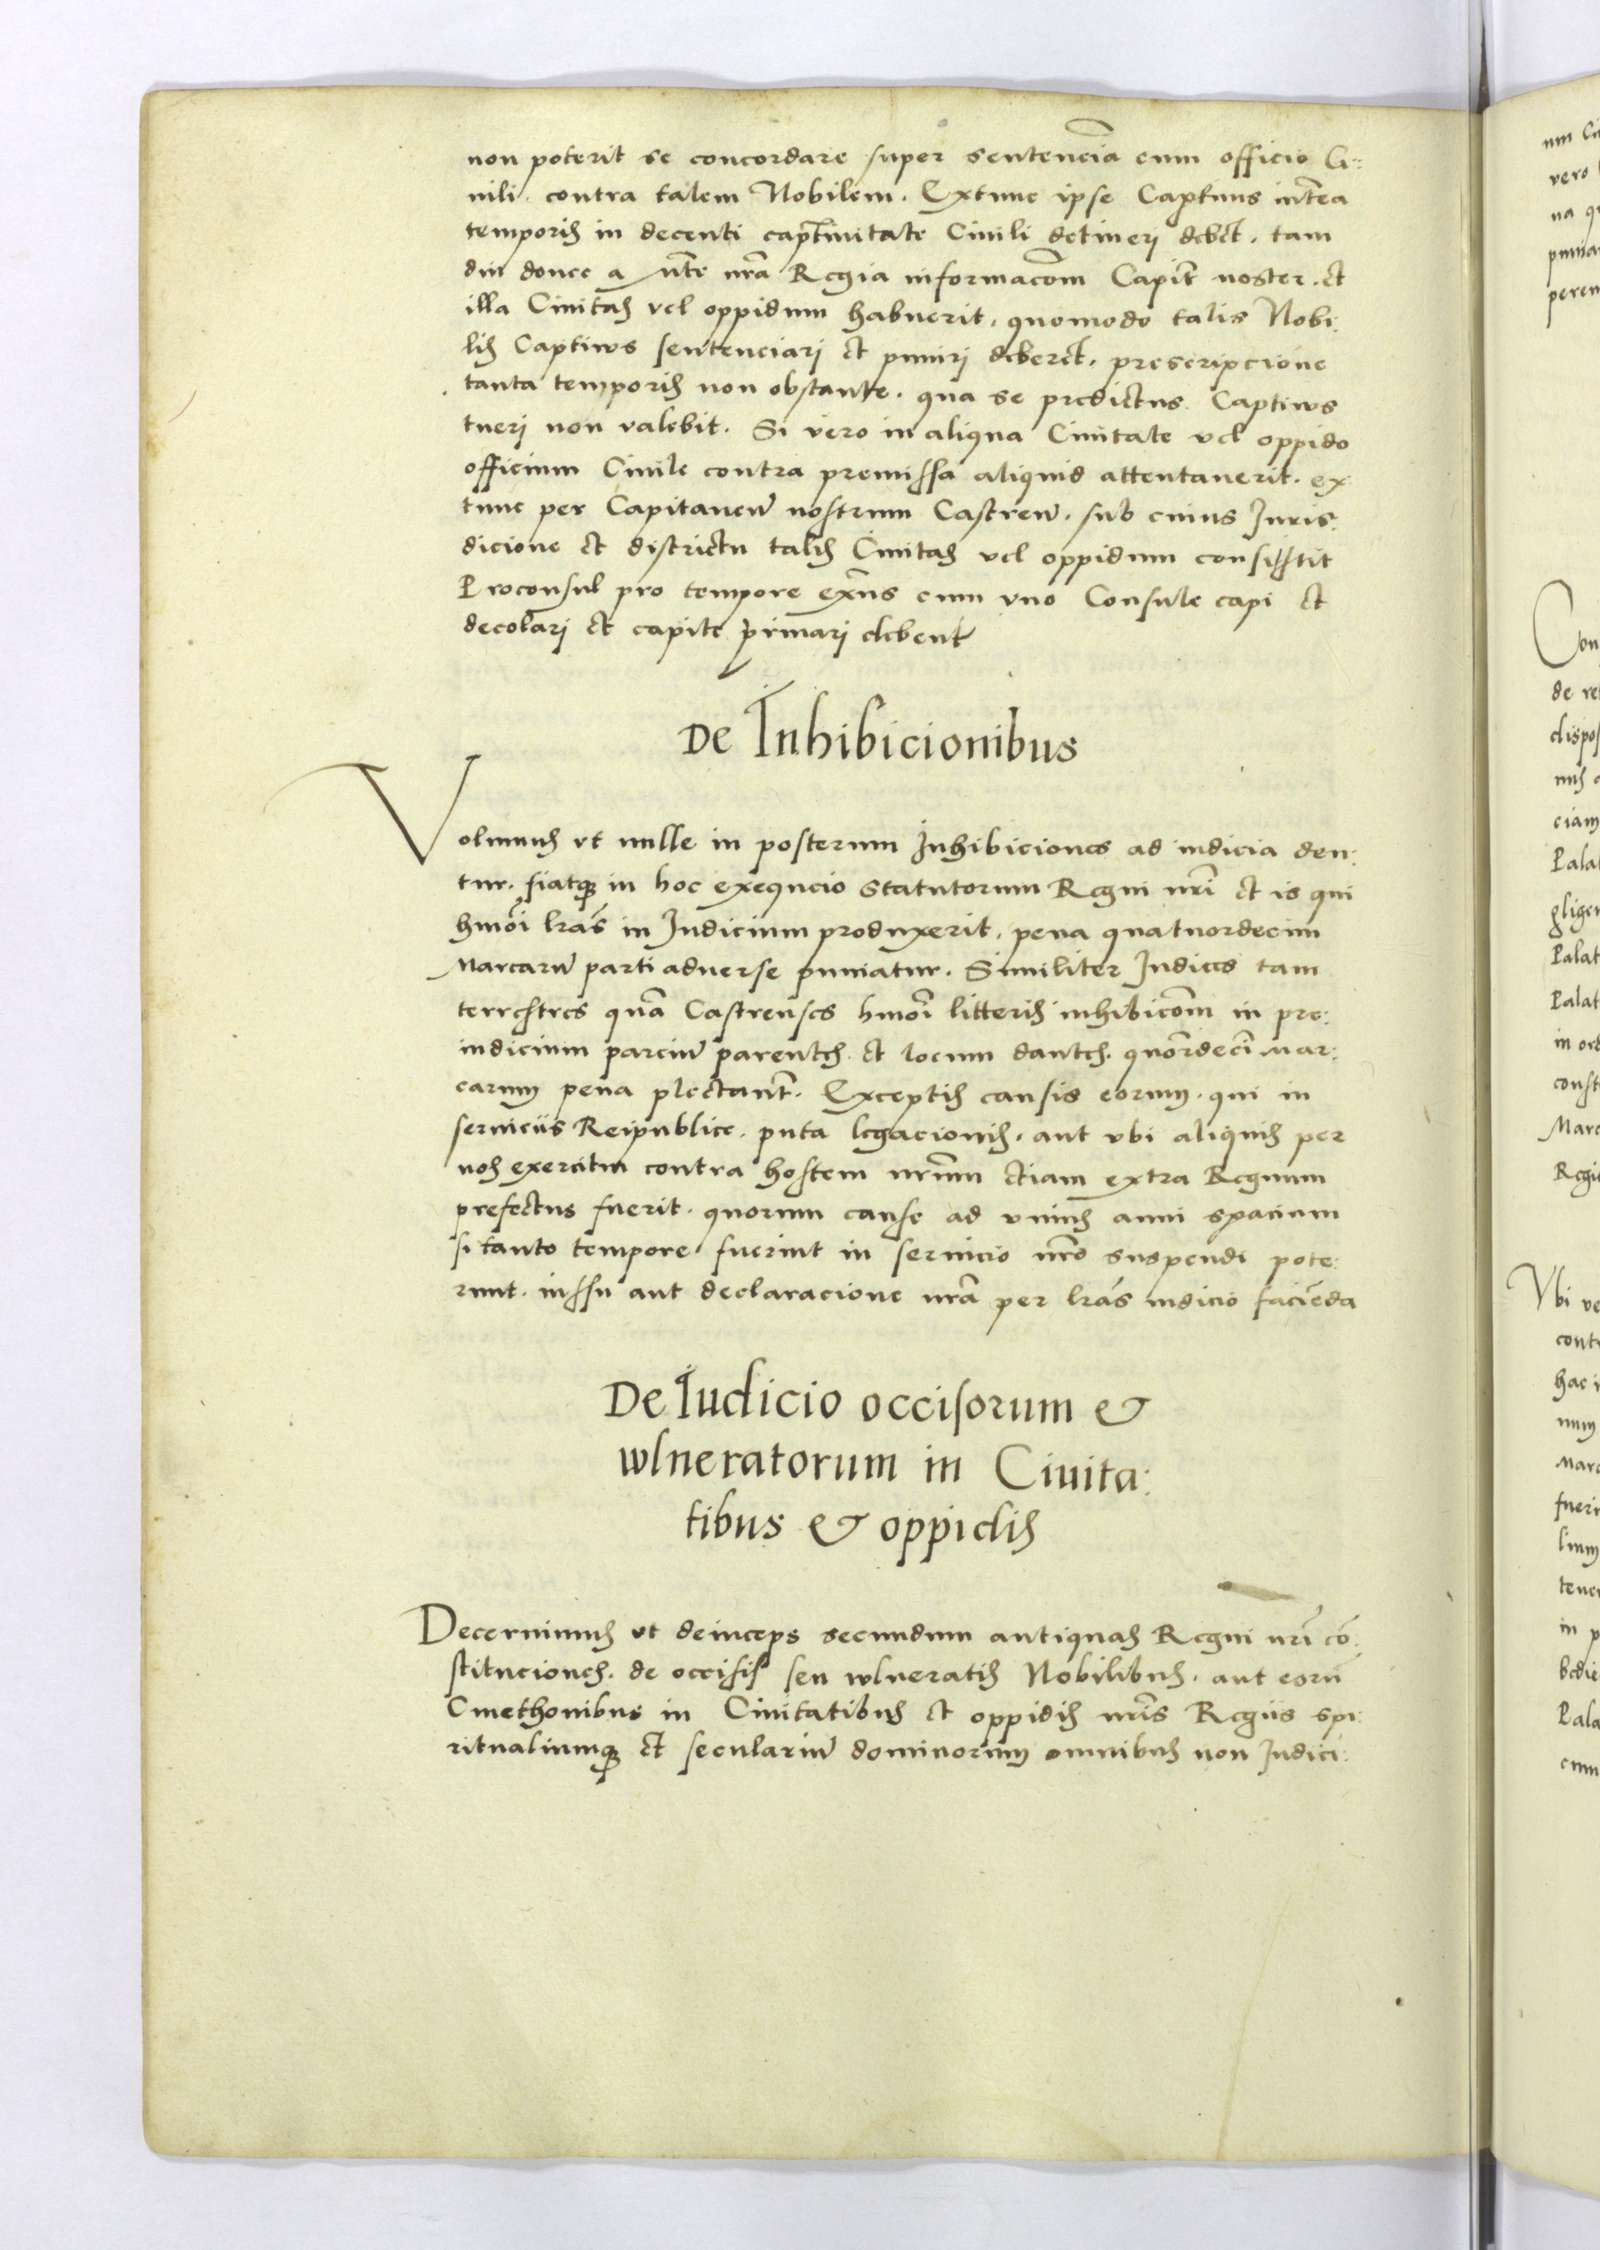 non poterit se concordare super sentencia cum officio Ci:
uili contra talem Nobilem. Extunc ipse Captiuus interea
temporis in decenti captiuitate Ciuili detineri debet. tam
diu donec a Mte nra Regia informacom Capit noster. et
illa Ciuitas vel oppidum habuerit, quomodo talis Nobi:
lis Captiws sentenciari et puniri deberet. prescripcione
tanta temporis non obstante. qua se predictus Captiws
tueri non valebit. Si vero in aliqua Ciuitate vel oppido
officium Ciuile contra premissa aliquid attentauerit. ex
tunc per Capitaneum nostrum Castren. sub cuius Juris:
dicione et districtu talis Ciuitas vel oppidum consistit
Proconsul pro tempore exns cum vno Consule capi et
decolari et capite priuari debent
De Inhibicionibus
Volumus vt nulle in posterum Inhibiciones ad iudicia den:
tur. fiatque in hoc exequcio statutorum Regni nri et is qui
hmoi lras in Judicium produxerit, pena quatuordecim
Marcarum parti aduerse puniatur. Similiter Judices tam
terrestres quam Castrenses hmoi litteris inhibicom in pre:
iudicium parcium parentes. et locum dantes. quordeci Mar:
carum pena plectant. Exceptis causis eorum. qui in
seruiciis Reipublice. puta legacionis. aut vbi aliquis per
nos exercitui contra hostem nrum etiam extra Regnum
prefectus fuerit. quorum cause ad vnius anni spacium
si tanto tempore fuerint in seruicio nro suspendi pote:
runt. iussu aut declaracione nra per lras iudicio facienda
De Iudicio occisorum &
wlneratorum in Ciuita:
tibus & oppidis
Decernimus vt deinceps secundum antiquas Regni nri co:
stituciones. de occisis seu wlneratis Nobilibus. aut eorum
Cmethonibus in Ciuitatibus et oppidis nris Regiis spi:
ritualiumque et secularium dominorum omnibus non Judici: